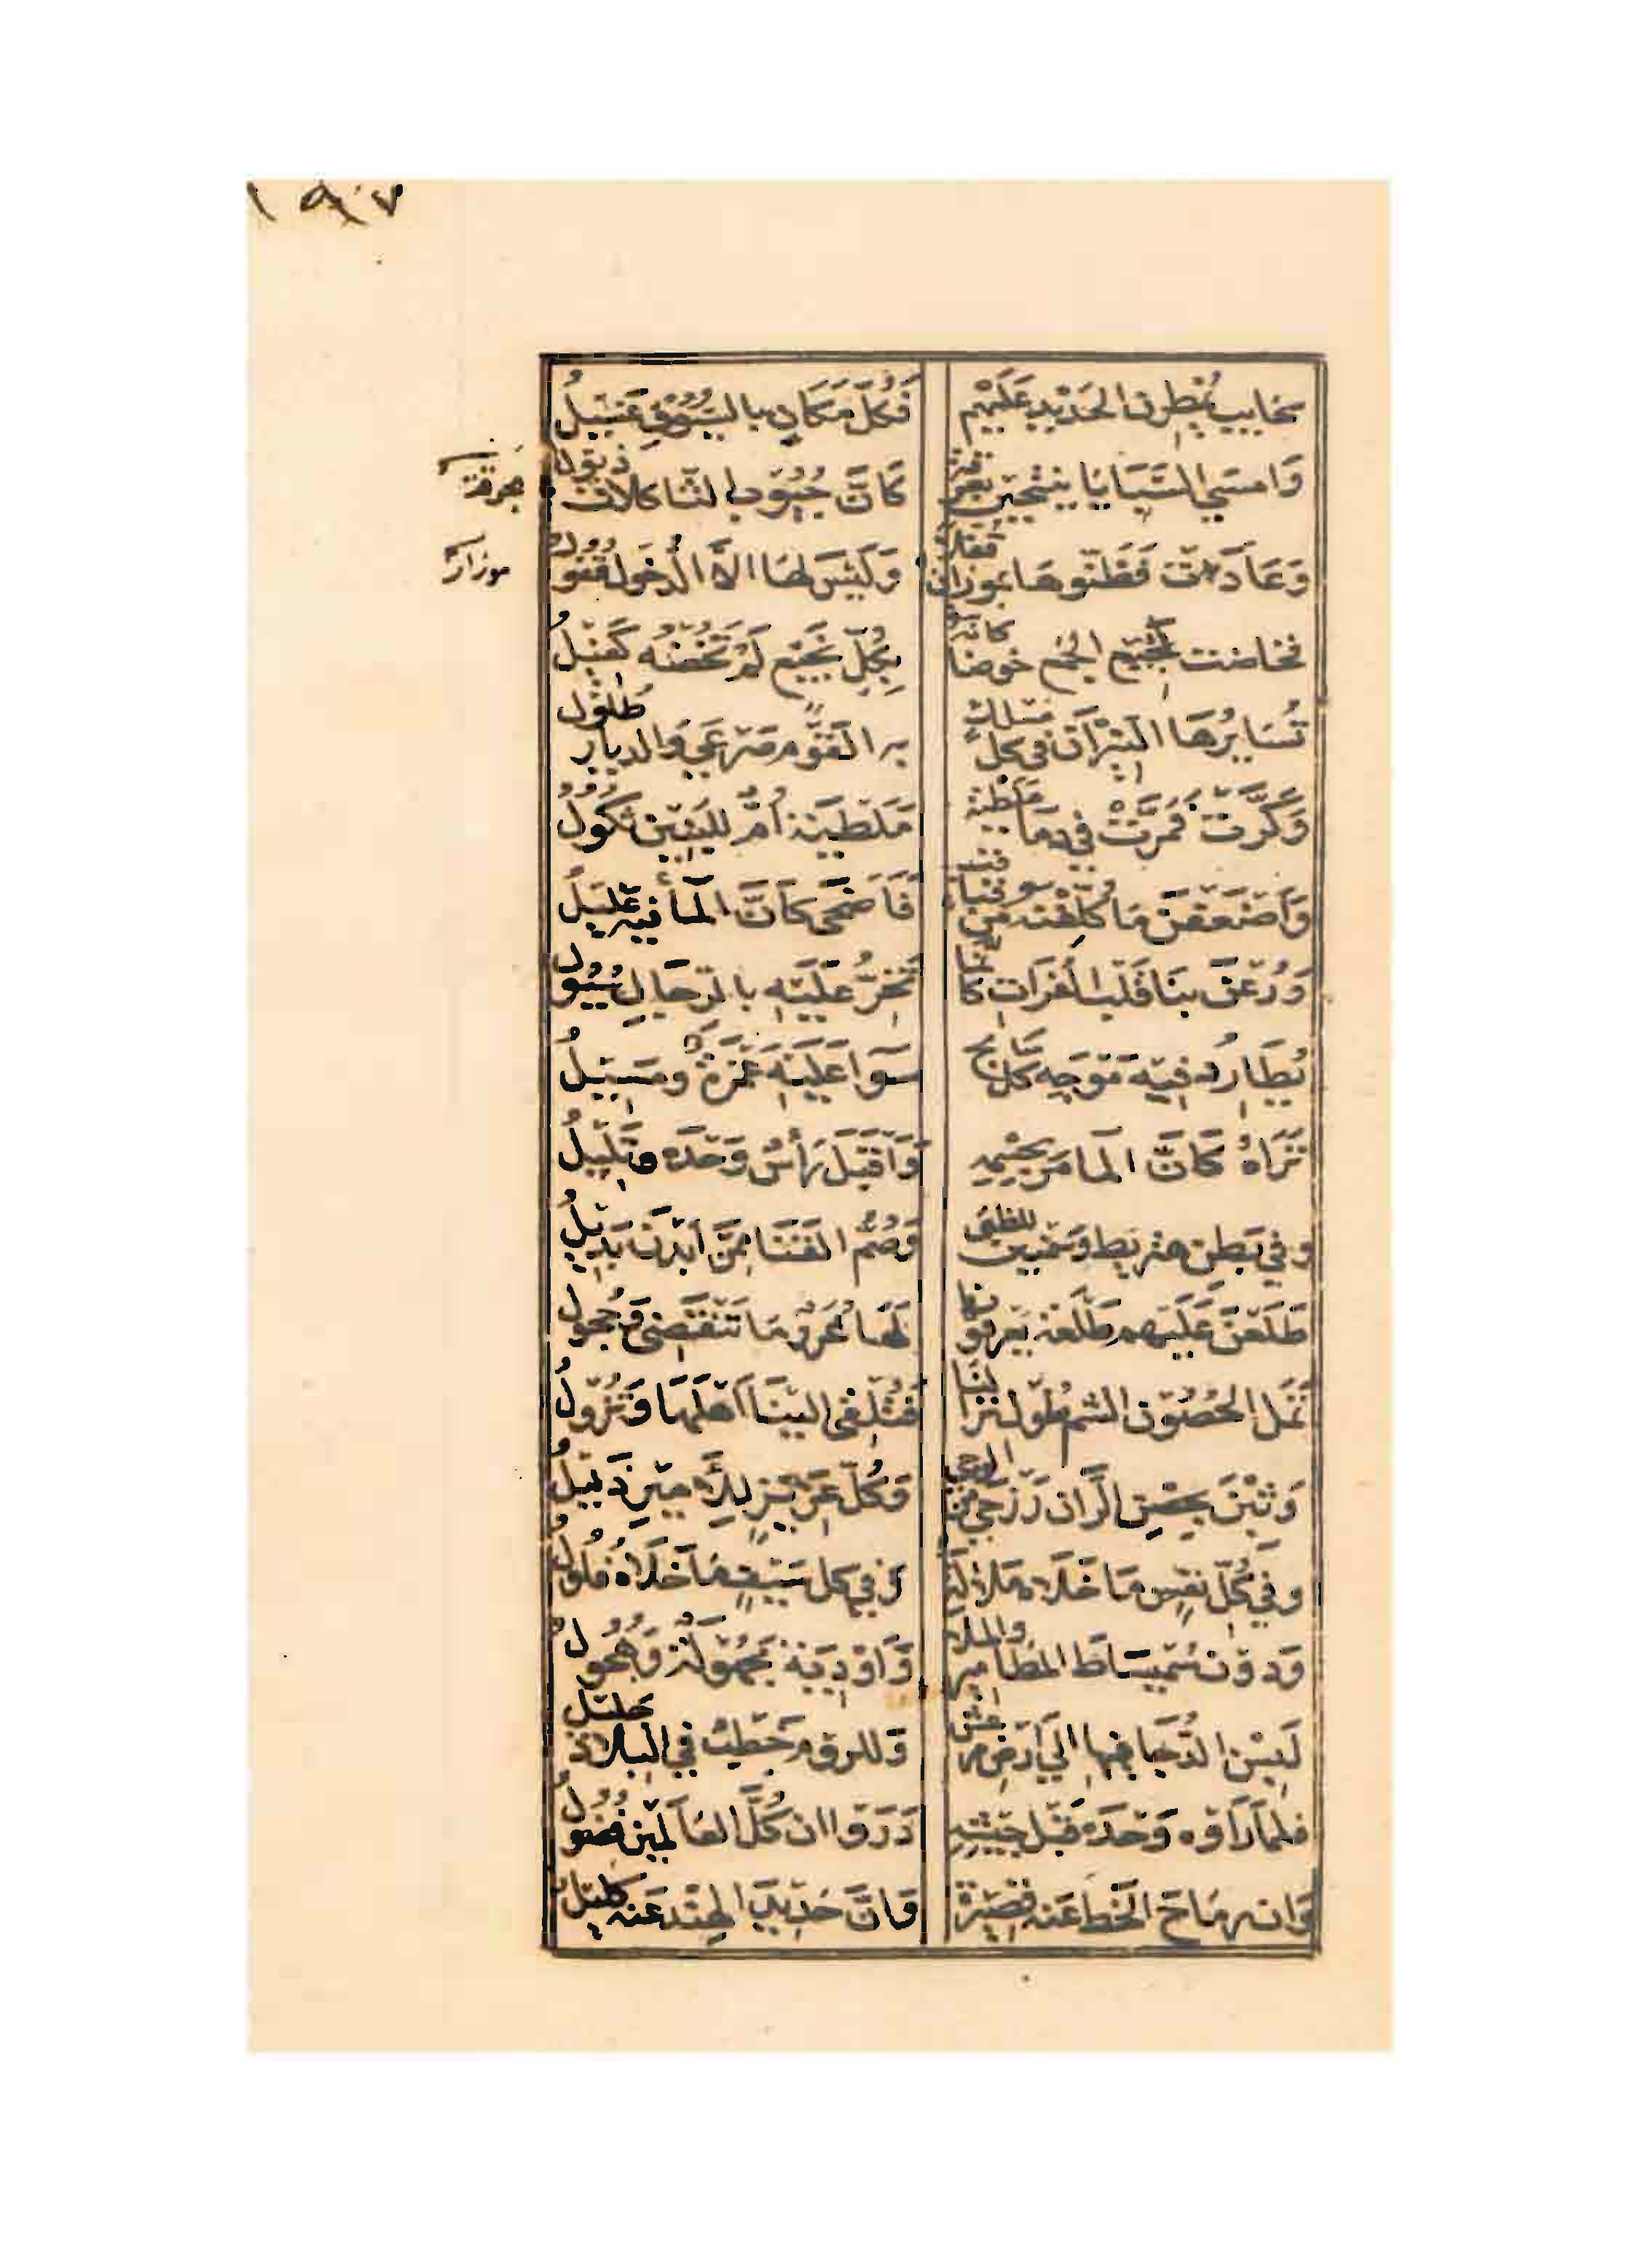 ١٩٧
سحايب يُمْطِرن الحَدْيدِ عَلَيْهِمْ فَكُلّ مَكَانٍ بالسُيُوْفِ غَسَيْلُ
وَامسَي السَّبَايَا ينتحبْن بعِرْقَة كَانَّ جُيُوْب الثَّاكلات ذيول
عرقة
وَعَادَت فَظَنّوهَا بموزان قفلاً وَلَيْسَ لهَا الاَّ الدُخول قُفُول
موزار
فخاضت نَجيْع الجمع خوضا كانه بِكُلّ نَجَيْعٍ لَمْ تَخُضْهُ كَفَيْلُ
تُسَايرُهَا النَيْرَان في كل مسلك به القَوْم صَرعَي وَالديار طُلُول
وَكَرَّتْ فَمَرَّتْ في دِمَا مَلَطْية مَلَطْيَة أُمٌّ للبَنِيْن ثكُول
وَاَضْعَفْنَ مَا كُلّفْنَه من قباقب فَاَضْحَى كَانَّ المآ فيه عَلَيْلُ
وَرُعْنَ بنَا قَلْب الفُرَاتِ كانما تَخِرُّ عَلَيْهِ بالرّجَالِ سُيُول
يُطَارِد فِيْهِ مَوْجَه كل سَابح سَوَآ عَلَيْهِ غَمْرَةٌ ومَسَيْلُ
تَرَاهُ كَانَّ المَا مَر بجسْمِهِ وَاَقْبَلَ رَأسٌ وَحْدَه وَتَلَيْلُ
وفي بَطِن هنريط وَسمْنين للظبى وَصُمّ القَنَا مِمَّن اَبَدْنَ بَدَيْلُ
طَلَعْنَ عَلَيْهِم طَلْعَة يَعْرفونها لَهَا غُرَرٌ مَا تَنْقَضى وَحُجُول
تَمَل الحُصُوْن الشم طُول نزالنا فَتُلْقى الَيْنَا اَهْلَهَا وَتَزُولُ
وَبِتْنَ بحِصْنِ الرَّان رَزْحَي من الوجي وَكُلّ عَزِيْزٍ للأَمِيْرِ ذَليْلُ
وفي كُلّ نفْسٍ مَا خَلَاه مَلالَة وفي كل سَيْفٍ مَا خَلَاهُ فُلُول
وَدون سُمَيْسَاطَ المطَاميرُ والملا وَاوْدِيَة مَجْهُوْلَة وَهُجُول
لَبِسْن الدُّجَا فيها الَي اَرضِ مرعش وَللروم خَطْبٌ في البلاد جليل
فلما رَاَوْه وَحْدَهُ قَبْل جَيْشِهِ دَرَوْا ان كُلَّ العَالَمَيْن فُضُول
وَان رمَاحَ الخَط عَنه قَصِيْرَة وَانَّ حَدَيْدَ الهِنْد عَنه كَليل